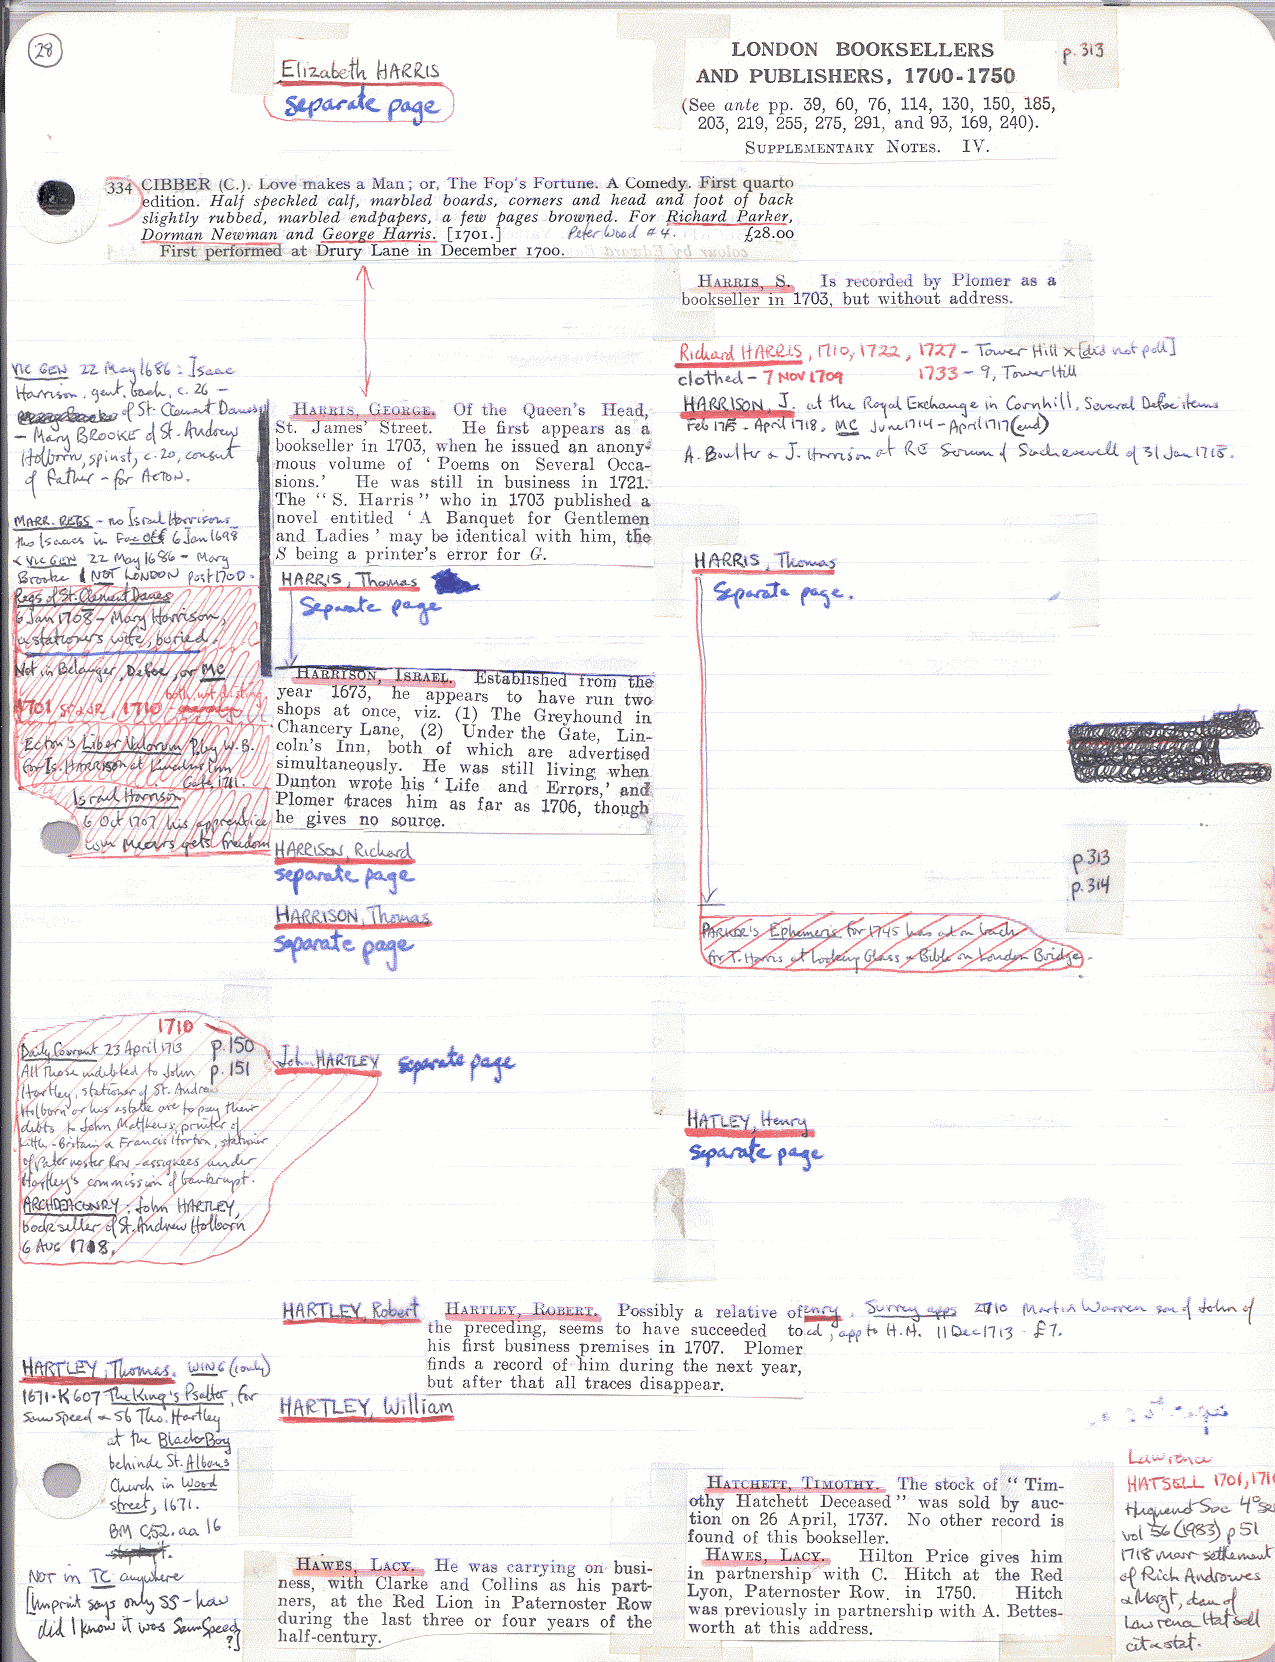 28
Elizabeth HARRIS
Separate page
LONDON BOOKSELLERS
AND PUBLISHERS, 1700-1750
p. 313
(See ante pp. 39, 60, 76, 114, 130, 150, 185,
203, 219, 255, 275, 291, and 93, 169, 240).
SUPPLEMENTARY NOTES. IV.
334 CIBBER (C.). Love makes a Man; or, The Fop's Fortune. A Comedy. First quarto
edition. Half speckled calf, marbled boards, corners and head and foot of back
slightly rubbed, marbled endpapers, a few pages browned. For Richard Parker,
Dorman Newman and George Harris. [1701.] Peter Wood #4. £28.00
First performed at Drury Lane in December 1700.
HARRIS, S. Is recorded by Plomer as a
bookseller in 1703, but without address.
Richard HARRIS, 1710, 1722, 1727 - Tower Hill x [did not poll]
clothed - 7 NOV 1709 1733 - 9, Tower Hill
HARRISON, J. at the Royal Exchange in Cornhill. Several Defoe items
April 1718, MC June 1714 - April 1717 (end)
A. Boulter & J. Harrison at RE Sermon of Sacheverell of 31 Jan
VIC GEN 22 May 1686: Isaac
Harrison, gent, bach, c. 26 -
of St. Clement Danes
- Mary BROOKE of St. Andrew
Holborn, spinst, c. 20, consent
of father - for ACTON.
MARR. REGS - no Israel Harrisons
tho Isaacs in Fac Off 6 Jan 1698
& VIC GEN 22 May 1686 - Mary
Brooke NOT LONDON post 1700.
Regs of St. Clement Danes
6 Jan 1708 - Mary Harrison,
a stationers wife, buried.
Not in Belanger, Defoe, or MC
1701 1710
Ecton's Liber Valorum W.B.
for Is. HARRISON at Lincolns Inn
Gate, 1711.
Israel Harrison
6 Oct 1707 his apprentice
Mears gets freedom
HARRIS, GEORGE. Of the Queen's Head,
St. James' Street. He first appears as a
bookseller in 1703, when he issued an anony-
mous volume of ' Poems on Several Occa-
sions.' He was still in business in 1721.
The " S. Harris " who in 1703 published a
novel entitled ' A Banquet for Gentlemen
and Ladies ' may be identical with him, the
S being a printer's error for G.
HARRIS, Thomas
Separate page
HARRISON, ISRAEL. Established from the
year 1673, he appears to have run two
shops at once, viz. (1) The Greyhound in
Chancery Lane, (2) Under the Gate, Lin-
coln's Inn, both of which are advertised
simultaneously. He was still living when
Dunton wrote his ' Life and Errors,' and
Plomer traces him as far as 1706, though
he gives no source.
HARRISON, Richard
Separate page
HARRISON, Thomas
Separate page
HARRIS, Thomas
Separate page.
p. 313
p. 314
PARKER'S Ephemeris for 1745 has ad on back
for T. Harris at Looking Glass & Bible on London Bridge.
1710
Daily Courant 23 April 1713
p. 150
p. 151
All those indebted to John
Hartley, stationer of St. Andrew
Holborn or his estate are to pay their
debts to John Matthews, printer of
Little-Britain & Francis Horton, stationer
of Paternoster Row - assignees under
Hartley's commission of bankrupt.
ARCHDEACONRY: John HARTLEY,
bookseller of St. Andrew Holborn
6 AUG 1718.
John HARTLEY Separate page
HATLEY, Henry
Separate page
HARTLEY, Robert
HARTLEY, ROBERT. Possibly a relative of
the preceding, seems to have succeeded to
his first business premises in 1707. Plomer
finds a record of him during the next year,
but after that all traces disappear.
enry. Surrey apps 2710 Martin Warren son of John of
app to H.H. 11 Dec 1713 - £7.
HARTLEY, Thomas. WING (only)
1671 - K607 The King's Psalter, for
Sam Speed & Sb Tho. Hartley
at the Black-Boy
behinde St. Albans
Church in Wood
street, 1671.
BM C.52. aa 16
NOT in TC anywhere
[Imprint says only SS - how
did I know it was Sam Speed
?]
HARTLEY, William
HAWES, LACY. He was carrying on busi-
ness, with Clarke and Collins as his part-
ners, at the Red Lion in Paternoster Row
during the last three or four years of the
half-century.
HATCHETT, TIMOTHY. The stock of " Tim-
othy Hatchett Deceased " was sold by auc-
tion on 26 April, 1737. No other record is
found of this bookseller.
HAWES, LACY. Hilton Price gives him
in partnership with C. Hitch at the Red
Lyon, Paternoster Row. in 1750. Hitch
was previously in partnership with A. Bettes-
worth at this address.
Lawrence
HATSELL 1701, 171
Huguenot Soc 4°
vol 56 (1983) p 51
1718 marr settlement
of Rich Androwes
& Margt, dau of
Lawrence Hatsell
cit & stat.